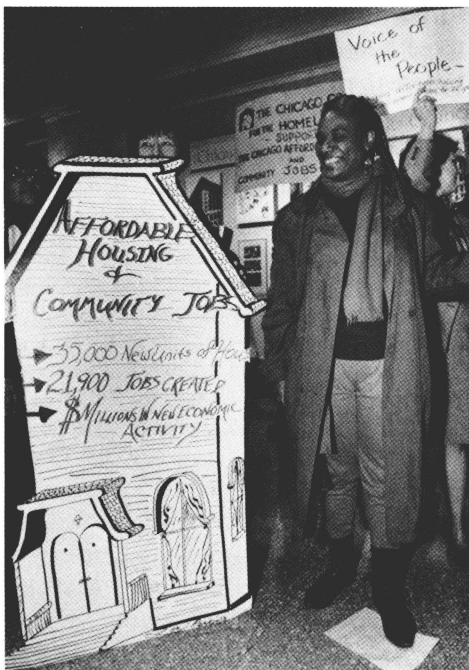 Voice of
the
People-
THE CHICAGO
FOR THE HOMEL
SUPPO
THE CHICAGO AFFORD
AND
COMMUNITY JOBS
AFFORDABLE
HOUSING
&
COMMUNITY JOBS
35,000 New Units of Hous
21,900 JOBS CREATED
$ MILLIONS IN NEW ECONOMIC
ACTIVITY